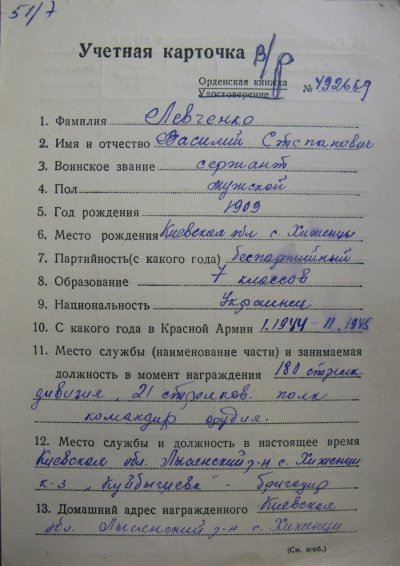 51/7
Учетная карточка в/р
Орденская книжка
Удостоверение № 492669
1. Фамилия Левченко
2. Имя и отчество Василий Степанович
3. Воинское звание сержант
4. Пол мужской
5. Год рождения 1909
6. Место рождения Киевская обл с. Хижинцы
7. Партийность(с какого года) беспартийный
8. Образование 7 классов
9. Национальность Украинец
10. С какого года в Красной Армии 1.1944 - 11.1945
11. Место службы (наименование части) и занимаемая
должность в момент награждения 180 стрелк
дивизия, 21 стрелков. полк
командир орудия.
12. Место службы и должность в настоящее время
Киевская обл. Лысянский р-н с. Хижинцы
к-з "Куйбышева" - бригадир
13. Домашний адрес награжденного Киевская
обл. Лысянский р-н с. Хижинцы
(См. п/об.)